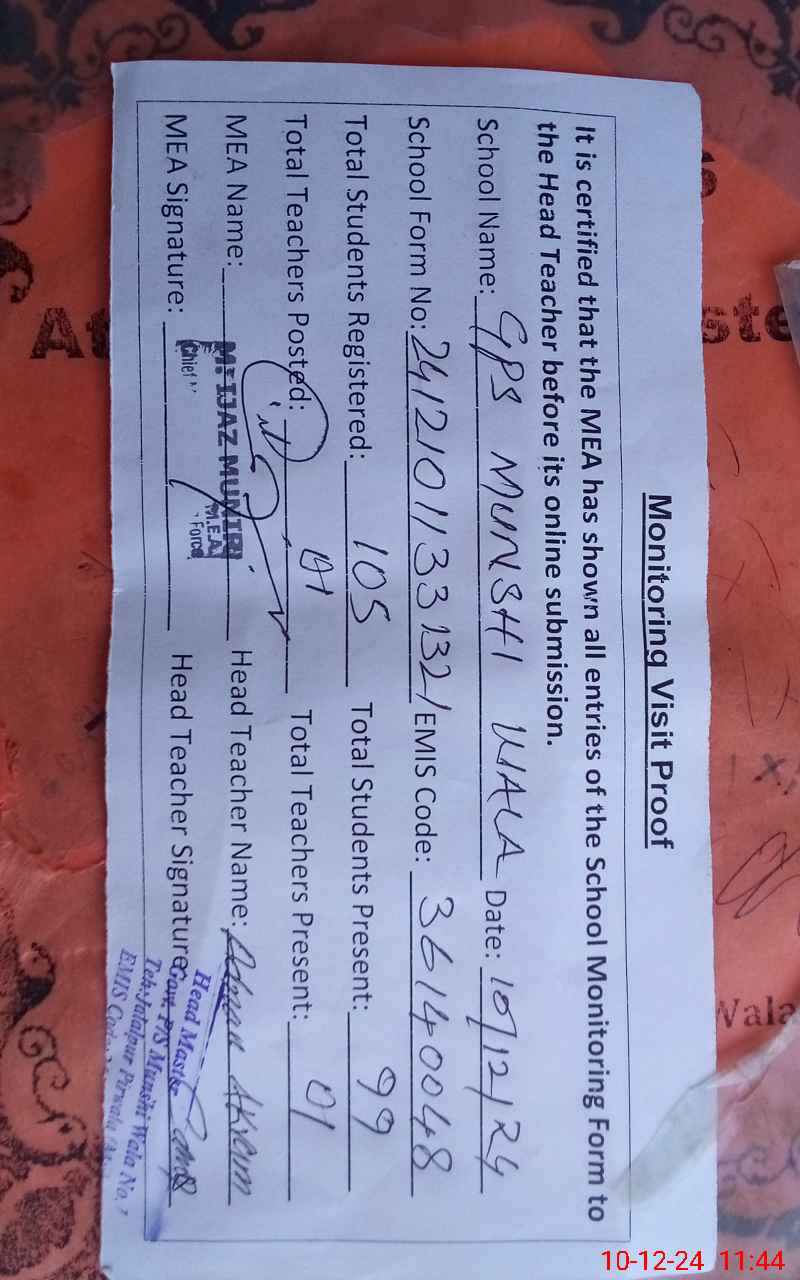 Monitoring Visit Proof
It is certified that the MEA has shown all entries of the School Monitoring Form to
the Head Teacher before its online submission.
School Name: GPS MUNSHI WALA Date: 10/12/24
School Form No: 2412101133132/ EMIS Code: 36140048
Total Students Registered: 105 Total Students Present: 99
Total Teachers Posted: 01 Total Teachers Present: 01
MEA Name: Head Teacher Name: Adnan Akram
MEA Signature: Head Teacher Signature:
M. IJAZ
M.E.A
Chief
Force
Head Master
Govt. P/S Munshi Wala No.
Teh: Jalalpur Pirwala
EMIS Code
Wala
10-12-24 11:44